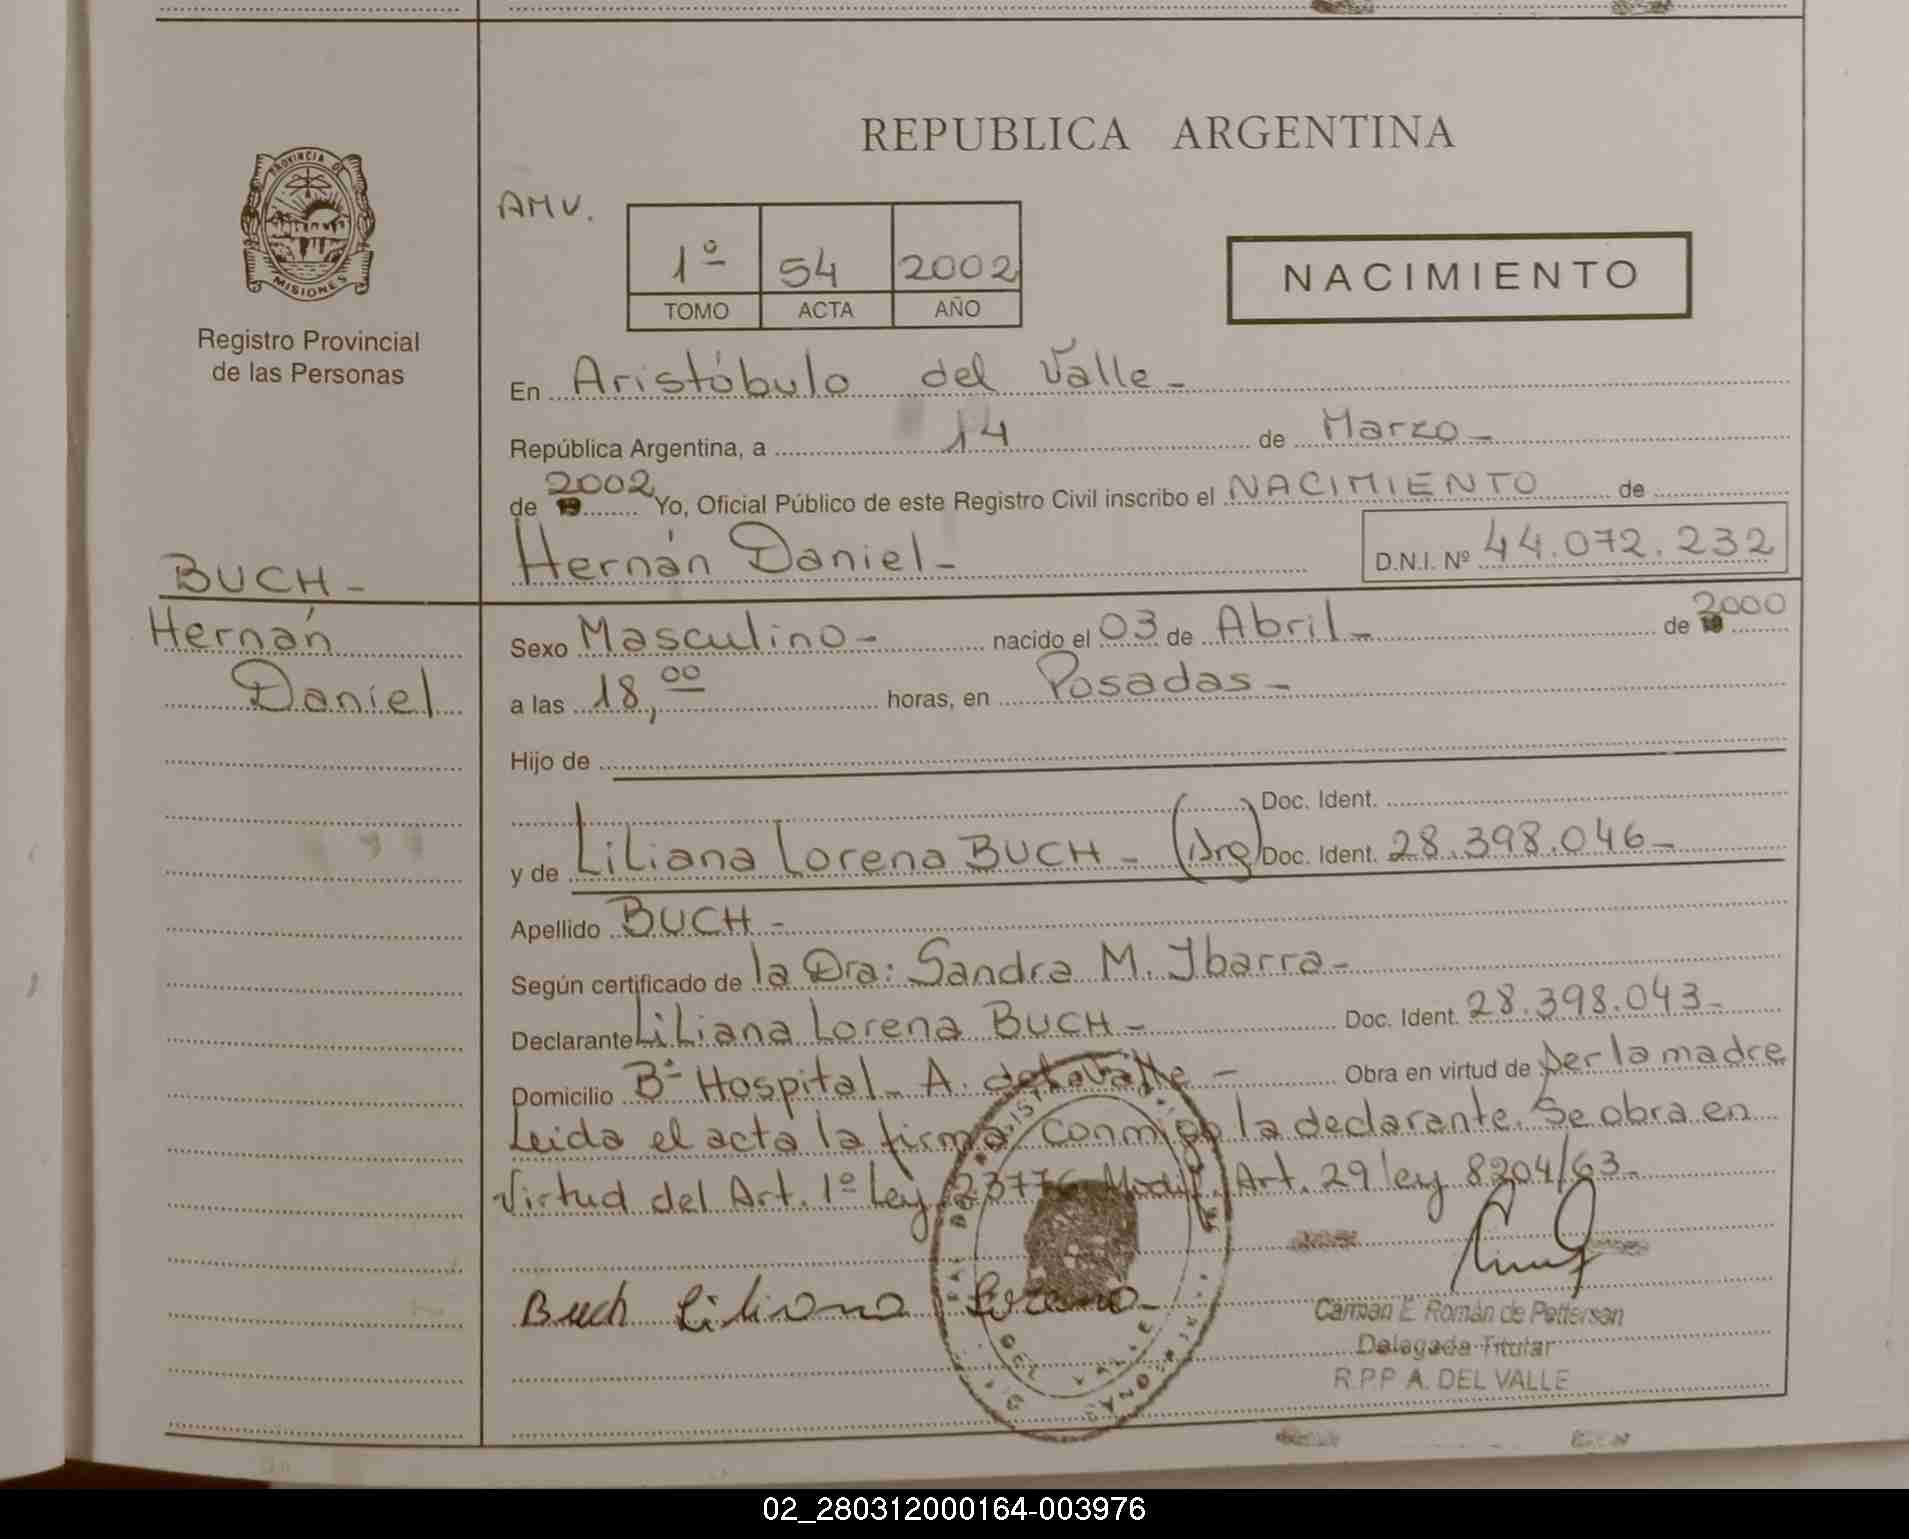 REPUBLICA ARGENTINA
PROVINCIA DE
MISIONES
Registro Provincial
de las Personas
AMV.
1º 54 2002
TOMO ACTA AÑO
NACIMIENTO
En Aristóbulo del Valle-
República Argentina, a 14 de Marzo-
de 2002 Yo, Oficial Público de este Registro Civil inscribo el NACIMIENTO de
Hernán Daniel- D.N.I. Nº 44.072.232
BUCH-
Hernán
Daniel
Sexo Masculino- nacido el 03 de Abril- de 2000
a las 18,00 horas, en Posadas-
Hijo de
Doc. Ident.
y de Liliana Lorena BUCH- (Arg) Doc. Ident. 28.398.046-
Apellido BUCH-
Según certificado de la Dra: Sandra M. Ibarra-
Declarante Liliana Lorena BUCH- Doc. Ident. 28.398.043-
Domicilio Bº Hospital- A. del Valle- Obra en virtud de ser la madre
Leida el acta la firma conmigo la declarante. Se obra en
Virtud del Art. 1º Ley 23776 Modif. Art. 29 ley 8204/63-
Buch Liliana Lorena-
Carmen E. Román de Pettersen
Delegada Titular
R.P.P A. DEL VALLE
02_280312000164-003976